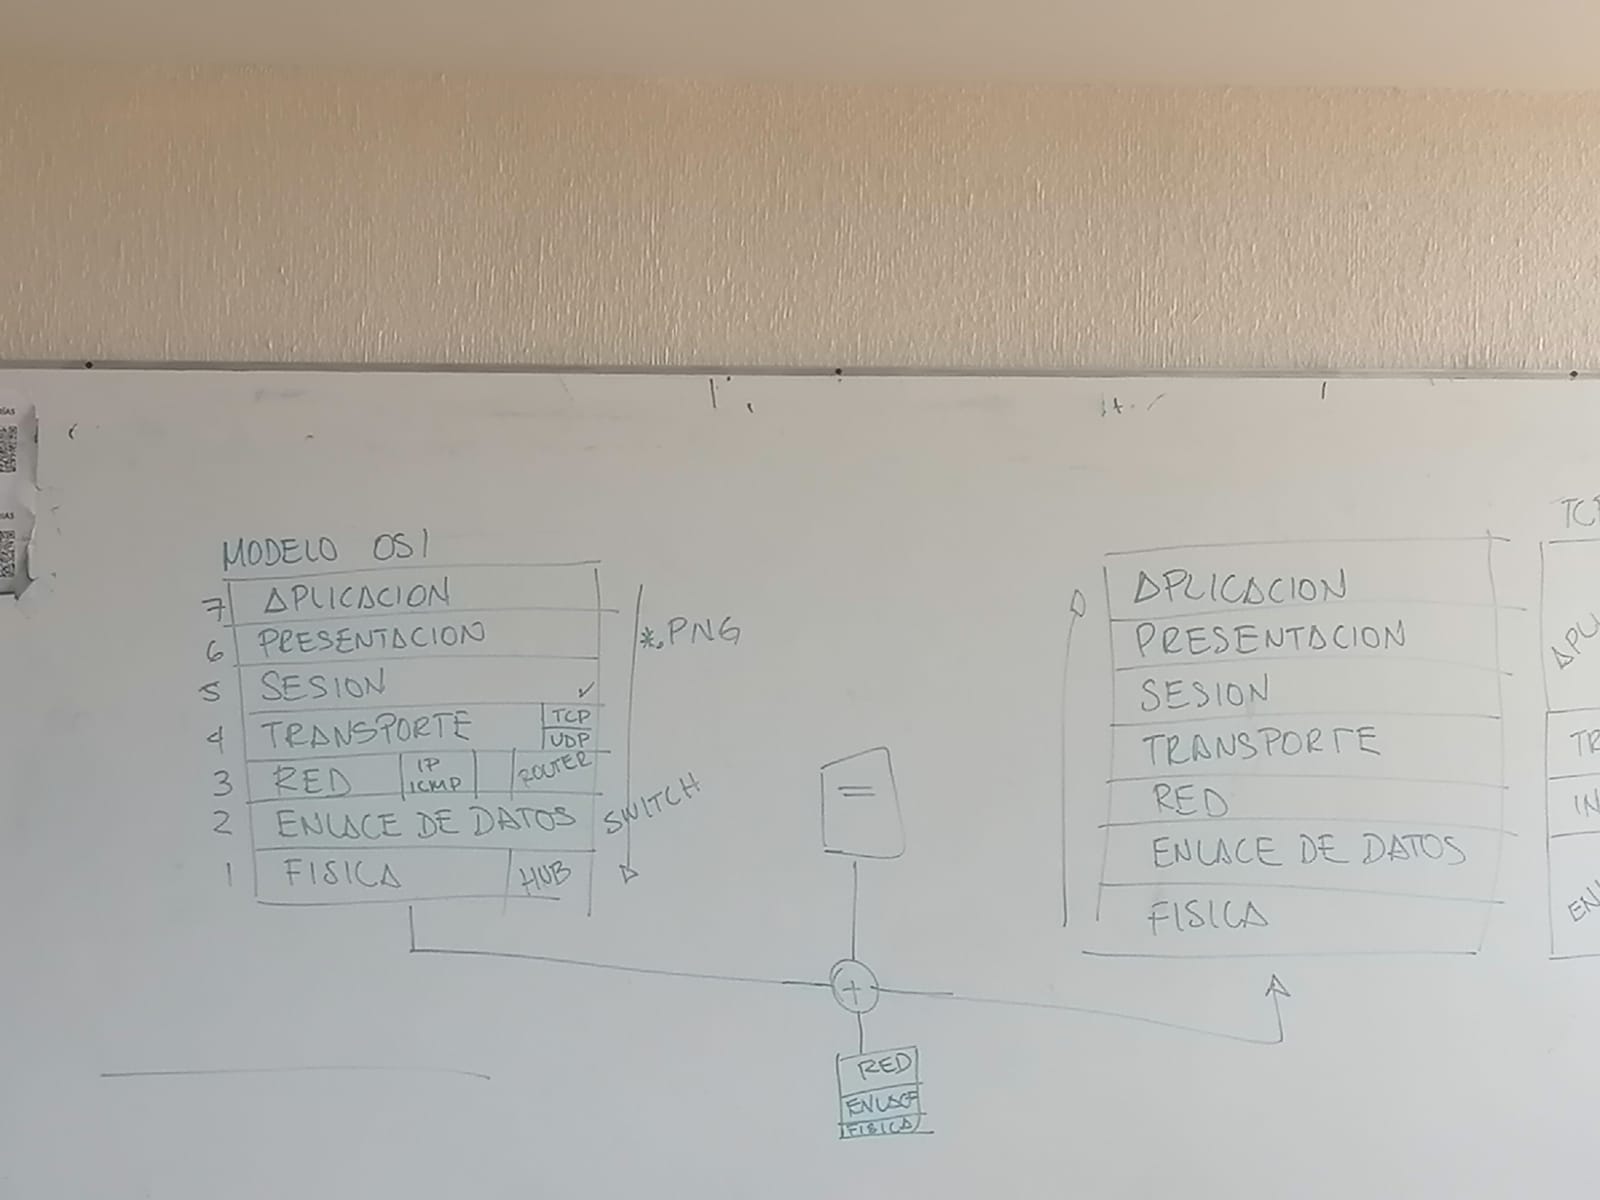 MODELO OSI
7 APLICACION
6 PRESENTACION
*.PNG
5 SESION
4 TRANSPORTE TCP
UDP
3 RED IP
ICMP
ROUTER
2 ENLACE DE DATOS SWITCH
1 FISICA HUB
RED
ENLACE
FISICA
APLICACION
PRESENTACION
SESION
TRANSPORTE
RED
ENLACE DE DATOS
FISICA
TC
APLI
TR
IN
EN